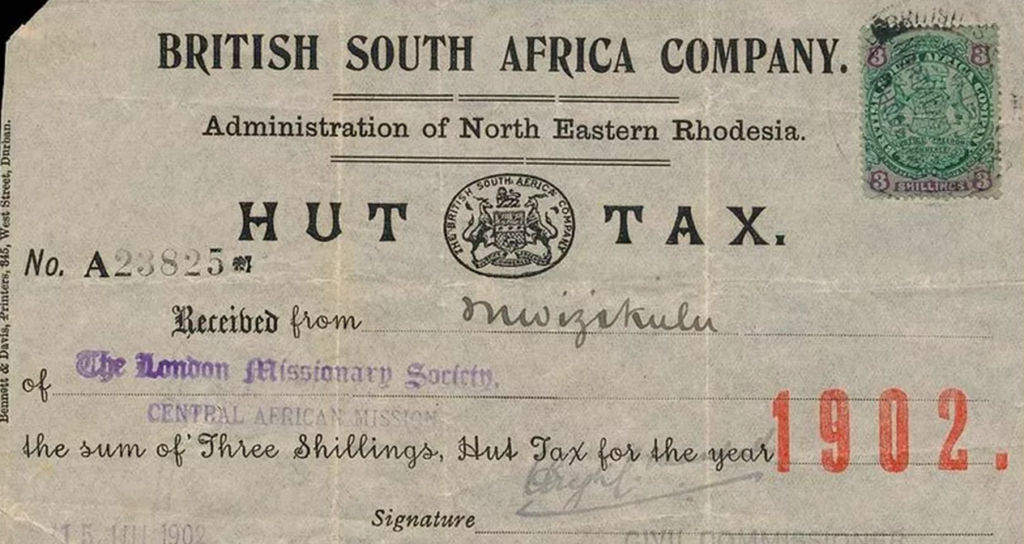 BRITISH SOUTH AFRICA COMPANY.
3 3
3 SHILLINGS 3
Administration of North Eastern Rhodesia.
HUT TAX.
THE BRITISH SOUTH AFRICA COMPANY
No. A23825
Received from Mwizekulu
of The London Missionary Society,
CENTRAL AFRICAN MISSION
the sum of Three Shillings, Hut Tax for the year 1902.
Signature
15 JUL 1902
CIVIL COMMISSIONER
Bennett & Davis, Printers, 345, West Street, Durban.